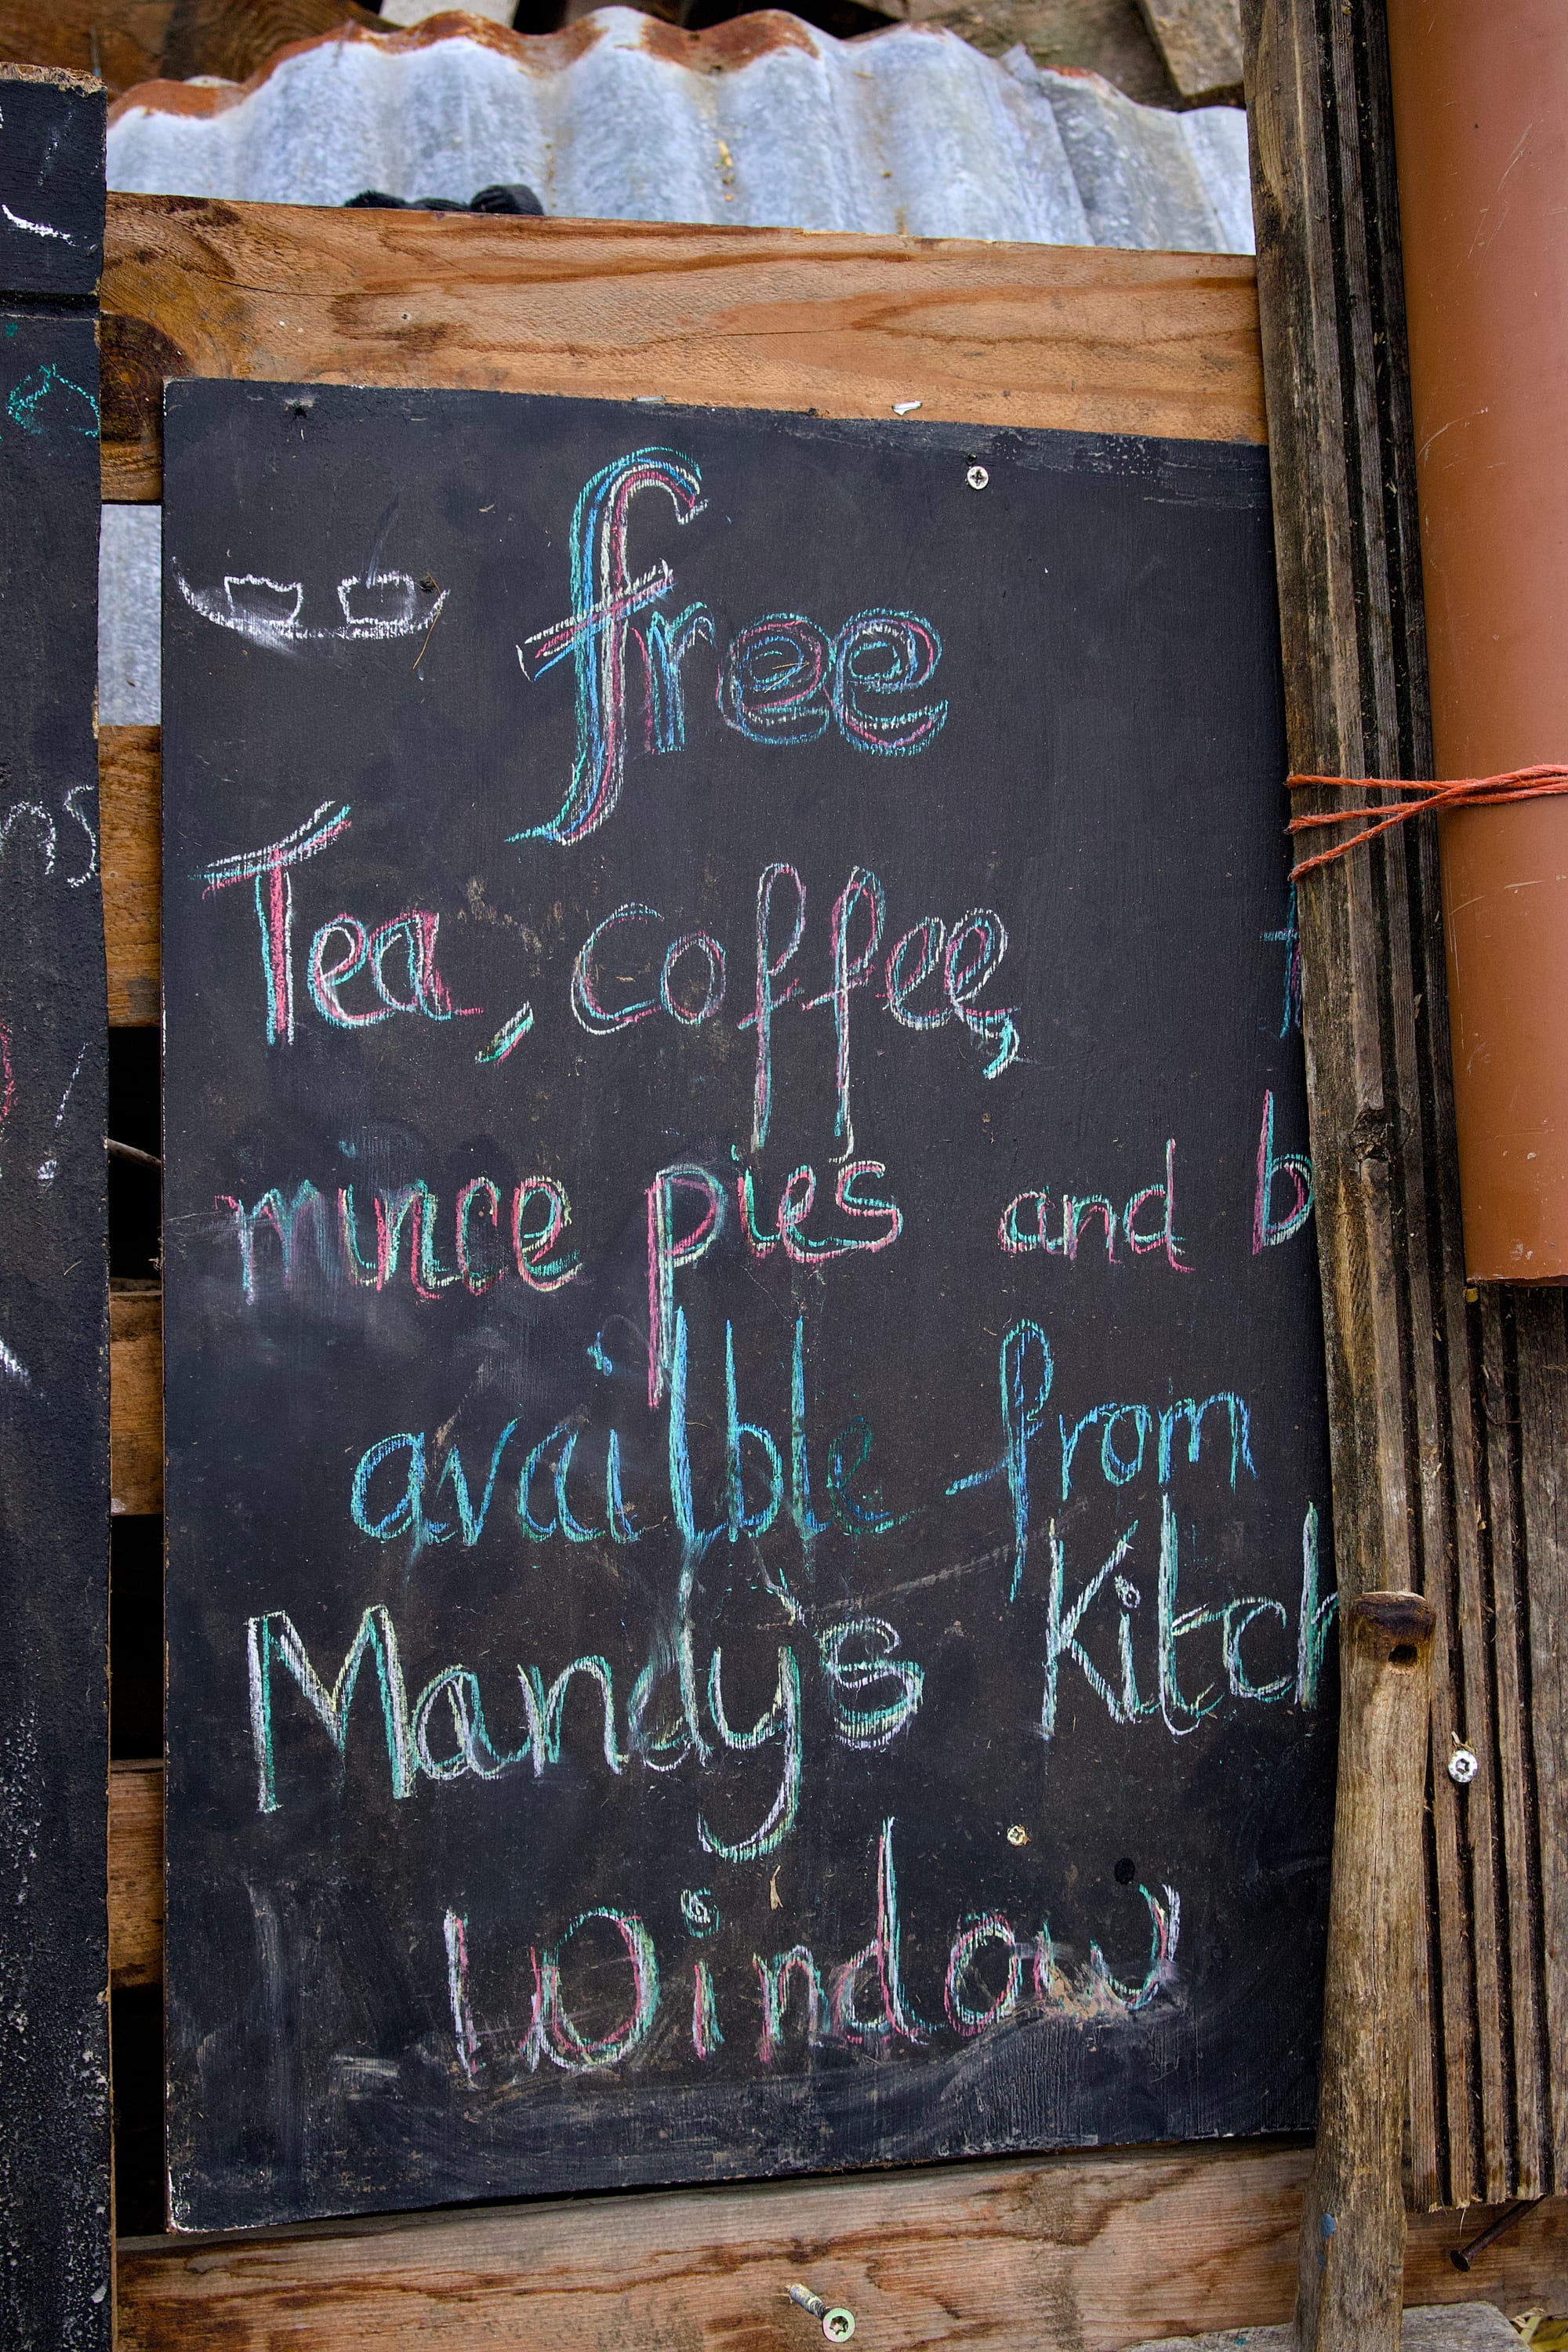 free
Tea, coffee,
mince pies and b
availble from
Mandy's Kitch
Window
ns